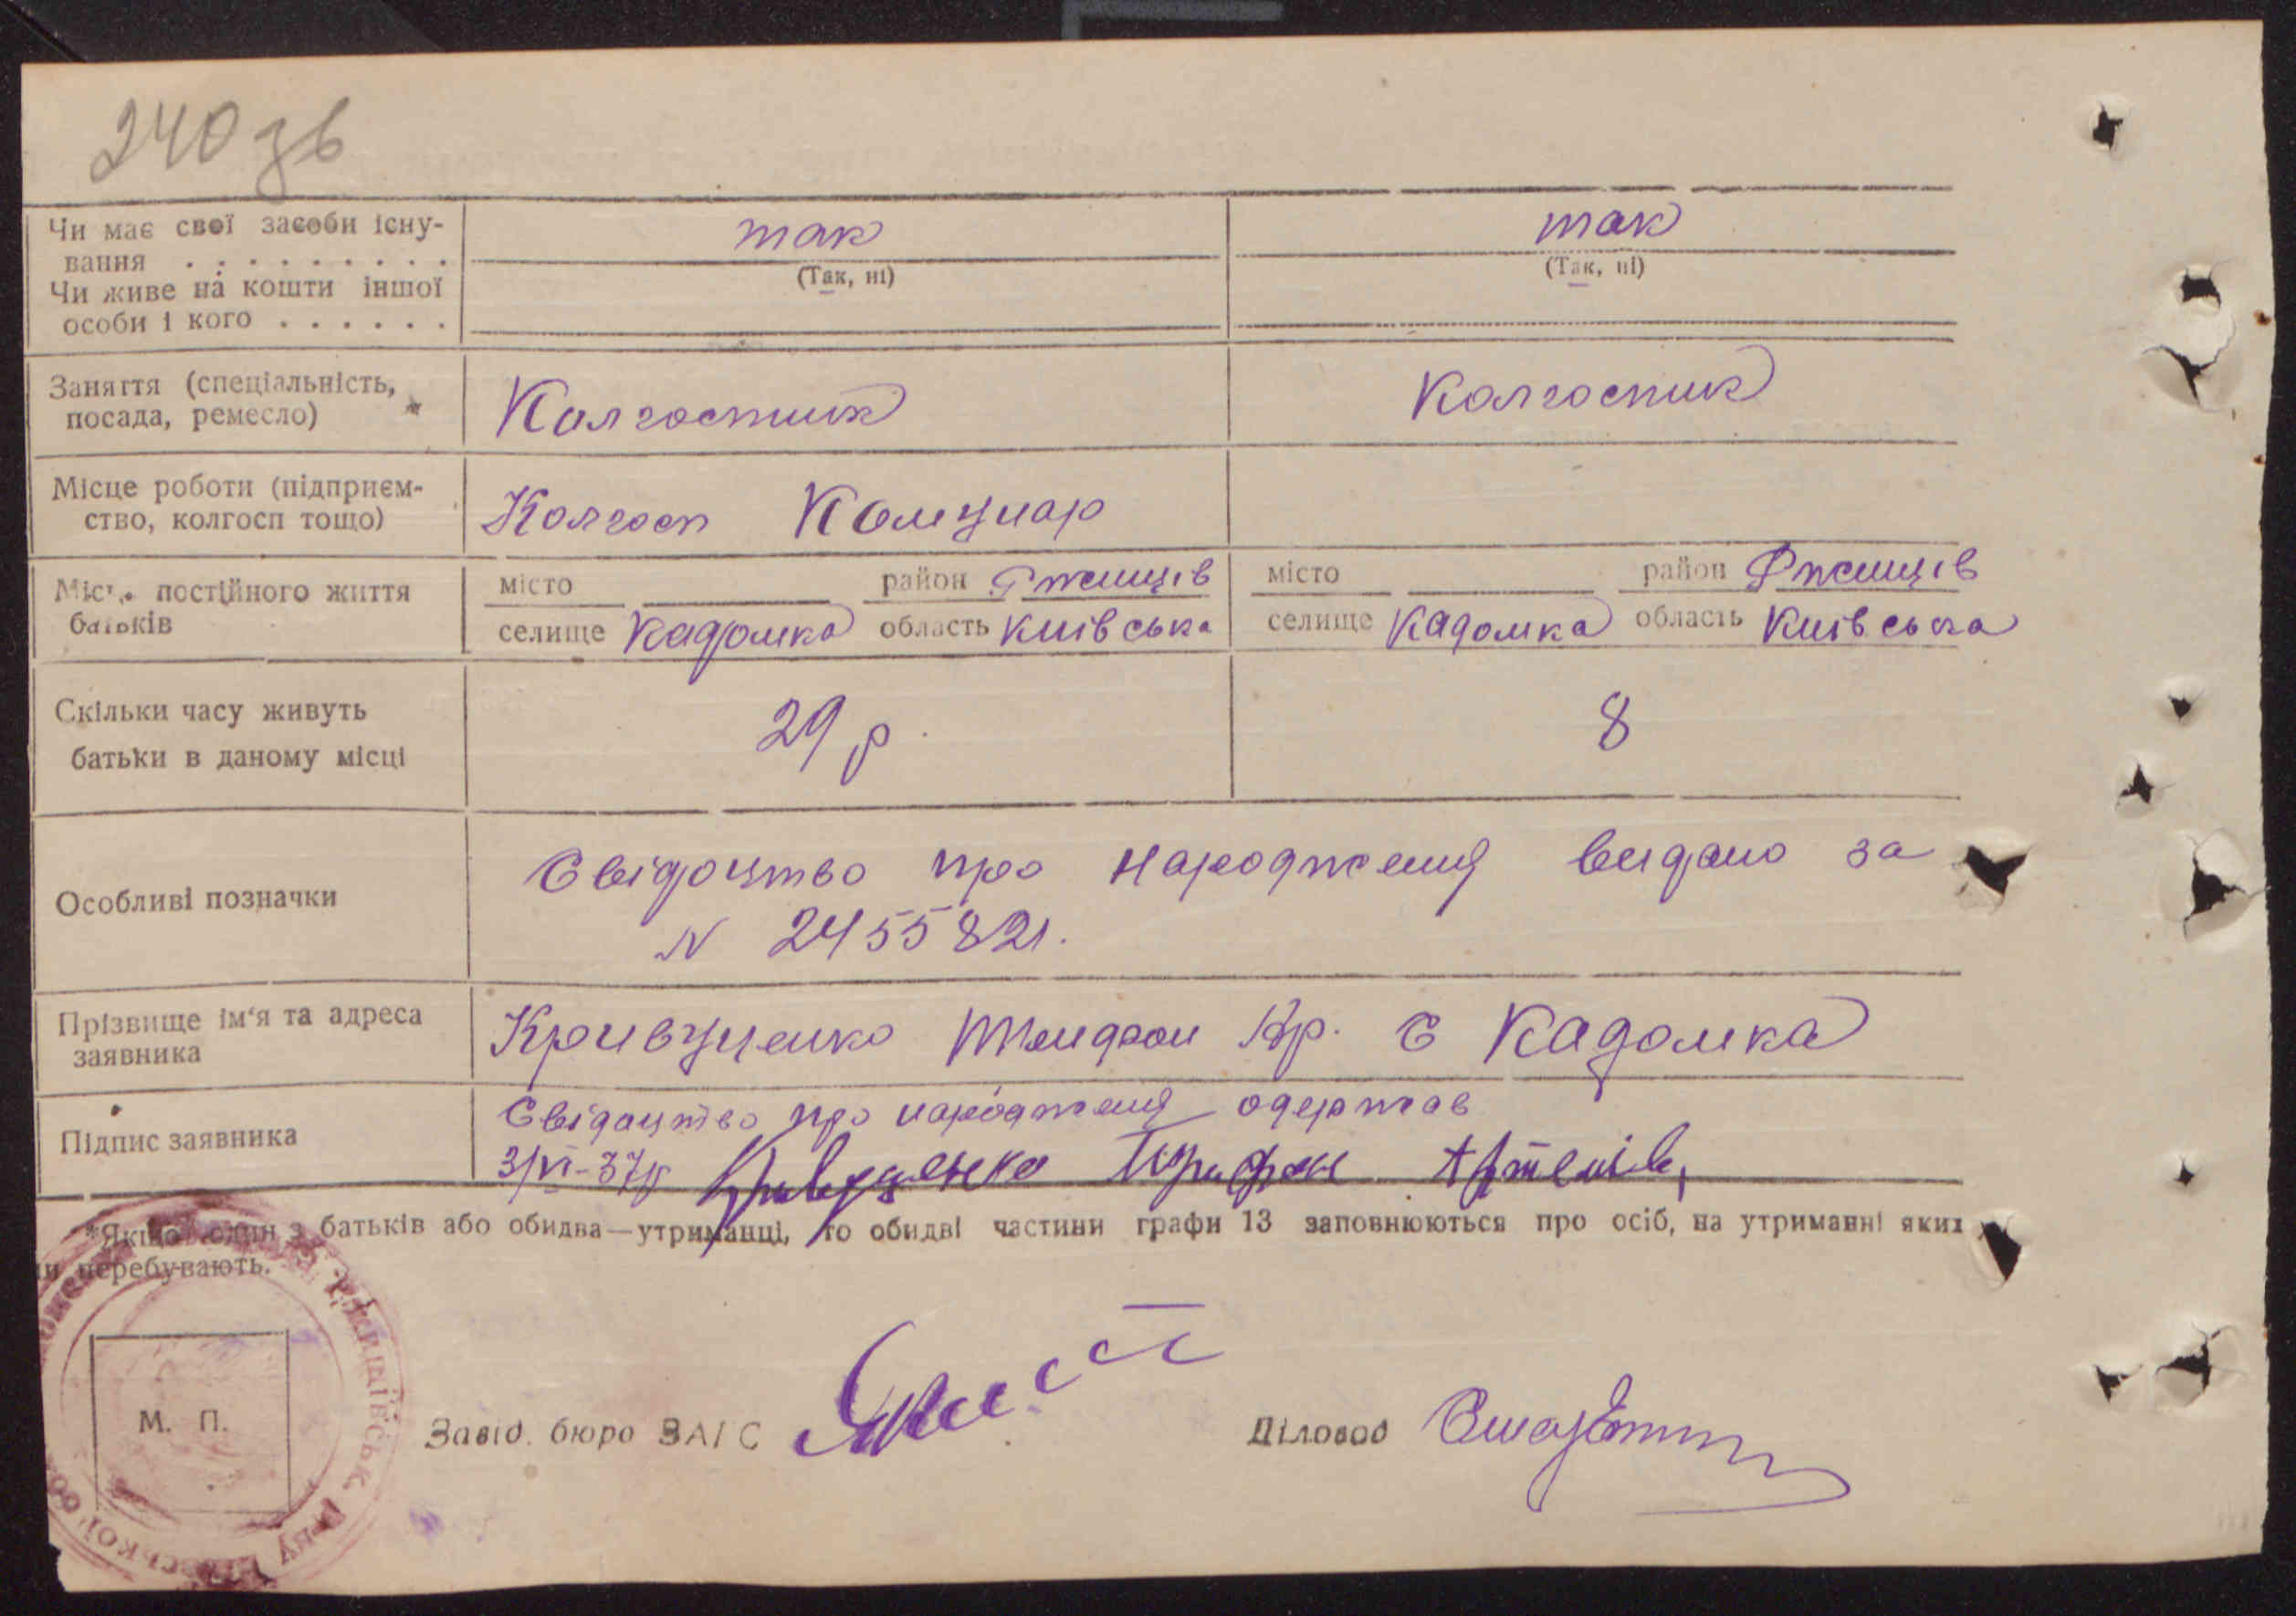 240 зв
Чи має свої засоби існу- так так
вання . . . . . . . . . (Так, ні) (Так, ні)
Чи живе на кошти іншої
особи і кого . . . . . .
Заняття (спеціальність, Колгоспник Колгоспник
посада, ремесло)
Місце роботи (підприєм- Колгосп Комунар
ство, колгосп тощо)
Місц. постійного життя місто район Ржищів місто район Ржищів
батьків селище Кадомка область Київська селище Кадомка область Київська
Скільки часу живуть 29 р. 8
батьки в даному місці
Особливі позначки Свідоцтво про народження видано за
N 2455821.
Прізвище ім'я та адреса Кривуценко Ар. С Кадомка
заявника
Свідоцтво про народження одержав
Підпис заявника 3/VI-37р
*Якщо один з батьків або обидва—утриманці, то обидві частини графи 13 заповнюються про осіб, на утриманні яких
перебувають.
М. П.
Завід. бюро ЗАГС
Діловод